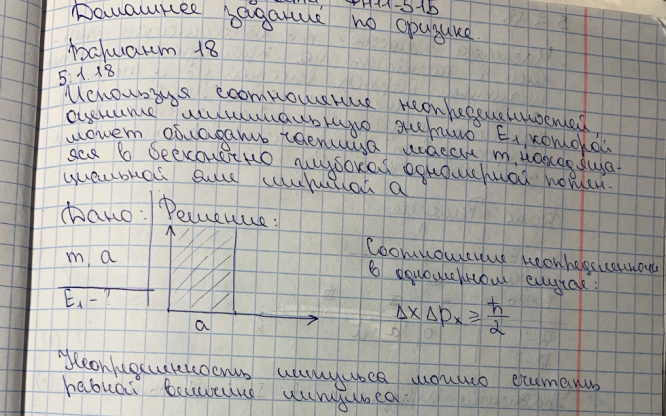 ФН11-51Б
Домашнее задание по физике.
Вариант 18
5.1.18
Используя соотношение неопределенностей,
оцените минимальную энергию E₁, которой
может обладать частица массы m, находяща-
яся в бесконечно глубокой одномерной потен-
циальной яме шириной a
Дано: Решение:
m, a
E₁-?
a
Соотношение неопределенности
в одномерном случае:
Δx Δpₓ ≥ ħ/2
Неопределенность импульса можно считать
равной величине импульса: